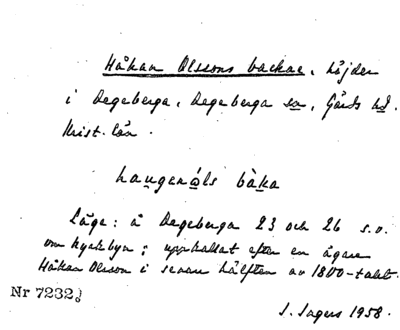 Håkan Olssons backar, höjder
i Degeberga, Degeberga sn, Gärds hd.
Krist. län.
haugenåls bàka
Läge: å Degeberga 23 och 26 s.v.
om kyrkbyn; uppkallat efter en ägare
Håkan Olsson i senare hälften av 1800-talet.
Nr 7232
J. Ingers 1958.